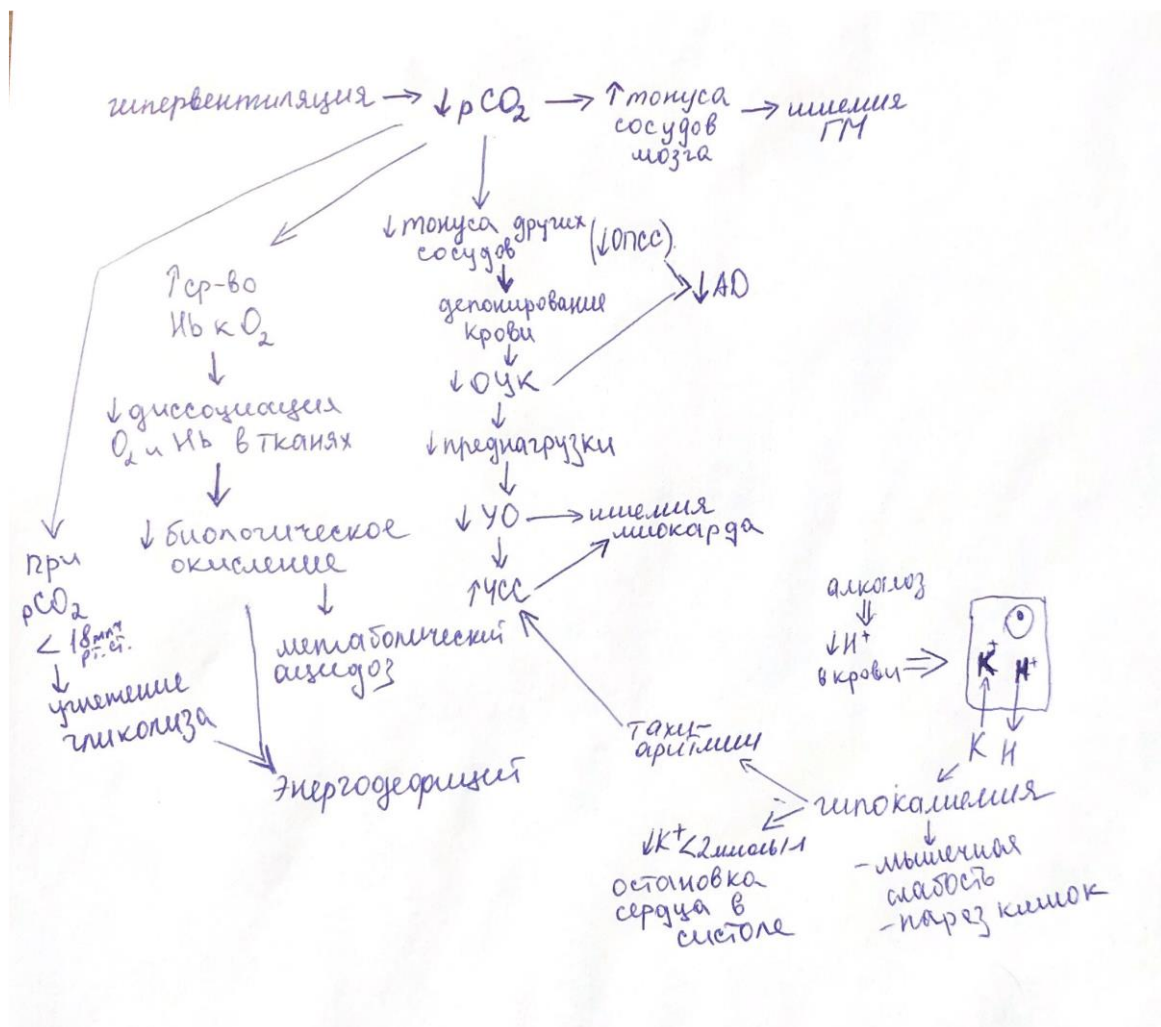 гипервентиляция → ↓ pCO₂ → ↑ тонуса
сосудов
мозга
→ ишемия
ГМ
↓ тонуса других
сосудов
(↓ОПСС)
↓АД
депонирование
крови
↓ОЦК
↓преднагрузки
↓ УО → ишемия
миокарда
↑ЧСС
↑ср-во
Hb к O₂
↓диссоциация
O₂ и Hb в тканях
↓ биологическое
окисление
метаболический
ацидоз
при
pCO₂
< 18 мм
рт.ст.
угнетение
гликолиза
Энергодефицит
алкалоз
↓H⁺
в крови
K⁺ H⁺
K H
гипокалиемия
тахи-
аритмии
↓K⁺<2ммоль/л
остановка
сердца в
систоле
-мышечная
слабость
-парез кишок